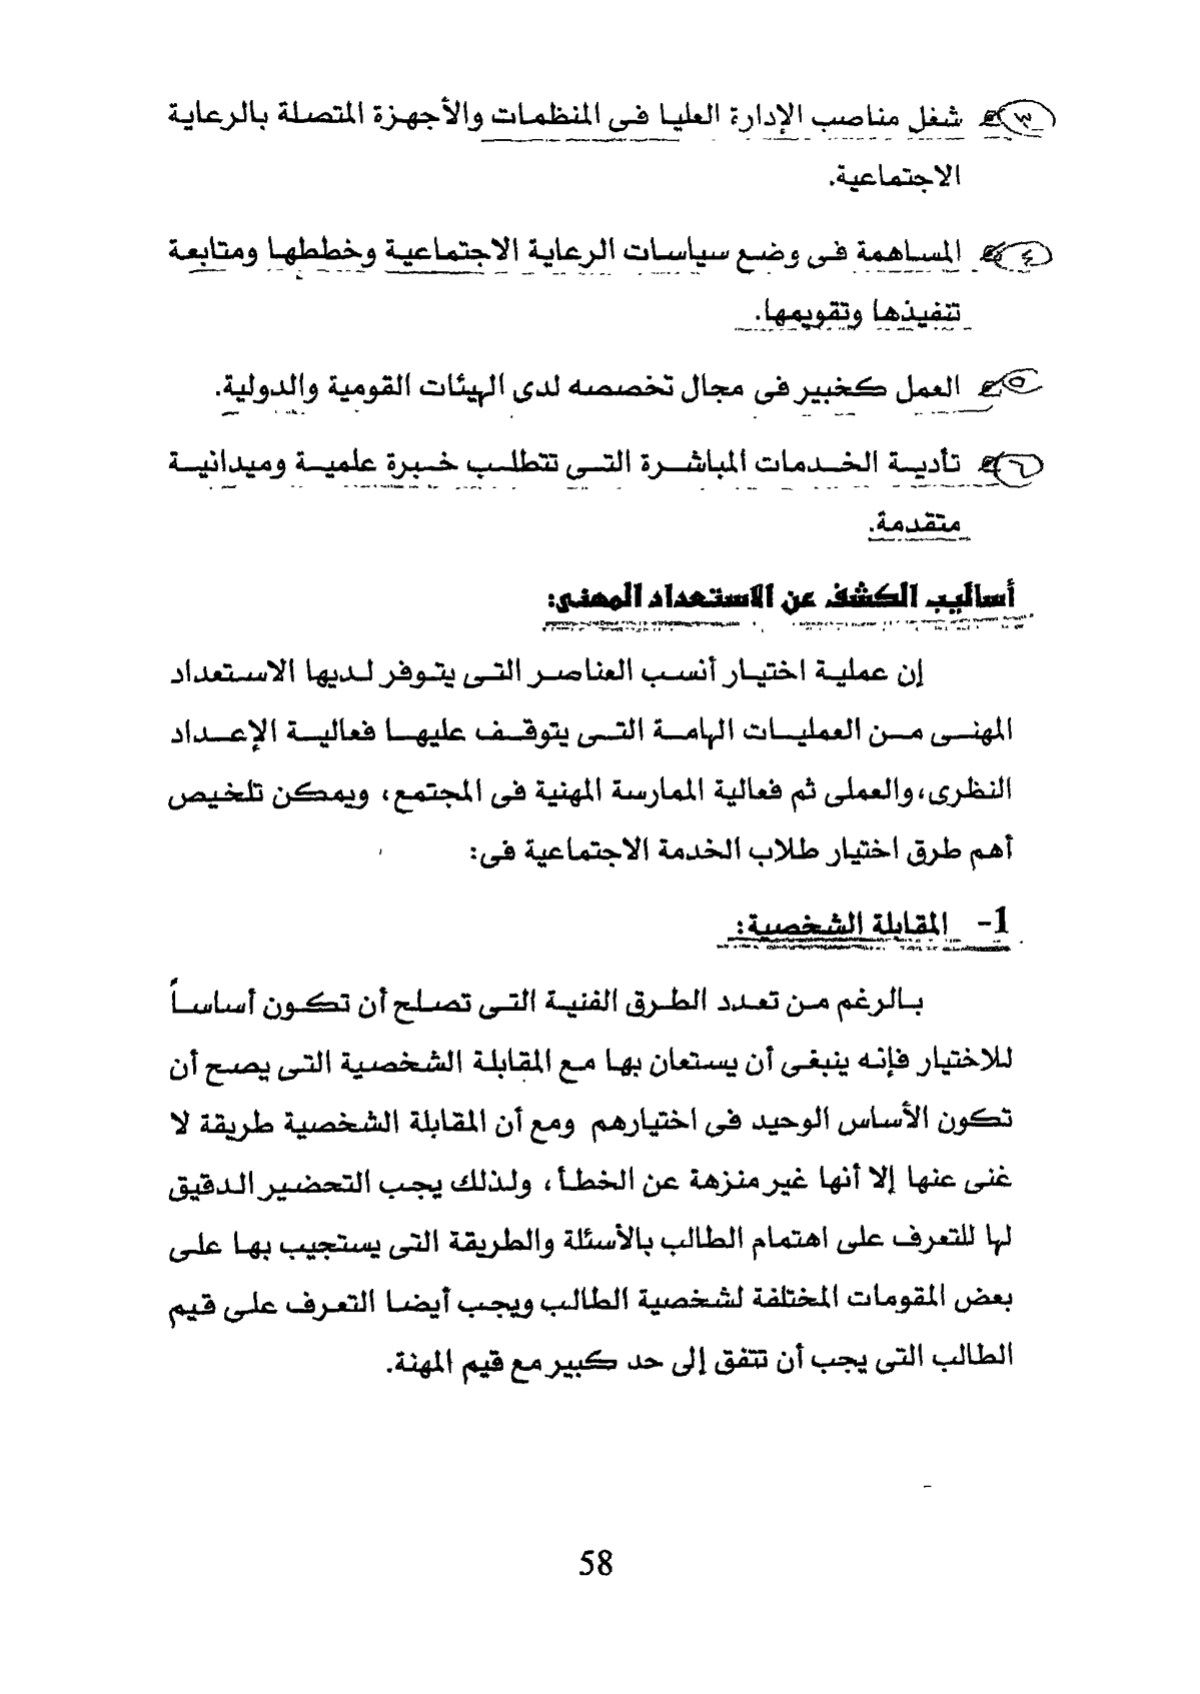 ٣ شغل مناصب الإدارة العليا فى المنظمات والأجهزة المتصلة بالرعاية
الاجتماعية.
٤ المساهمة فى وضع سياسات الرعاية الاجتماعية وخططها ومتابعة
تنفيذها وتقويمها.
٥ العمل كخبير فى مجال تخصصه لدى الهيئات القومية والدولية.
٦ تأدية الخدمات المباشرة التى تتطلب خبرة علمية وميدانية
متقدمة.
أساليب الكشف عن الاستعداد المهنى:
إن عملية اختيار أنسب العناصر التى يتوفر لديها الاستعداد
المهنى من العمليات الهامة التى يتوقف عليها فعالية الإعداد
النظرى،والعملى ثم فعالية الممارسة المهنية فى المجتمع، ويمكن تلخيص
أهم طرق اختيار طلاب الخدمة الاجتماعية فى:
1- المقابلة الشخصية:
بالرغم من تعدد الطرق الفنية التى تصلح أن تكون أساساً
للاختيار فإنه ينبغى أن يستعان بها مع المقابلة الشخصية التى يصح أن
تكون الأساس الوحيد فى اختيارهم ومع أن المقابلة الشخصية طريقة لا
غنى عنها إلا أنها غير منزهة عن الخطأ، ولذلك يجب التحضير الدقيق
لها للتعرف على اهتمام الطالب بالأسئلة والطريقة التى يستجيب بها على
بعض المقومات المختلفة لشخصية الطالب ويجب أيضا التعرف على قيم
الطالب التى يجب أن تتفق إلى حد كبير مع قيم المهنة.
58